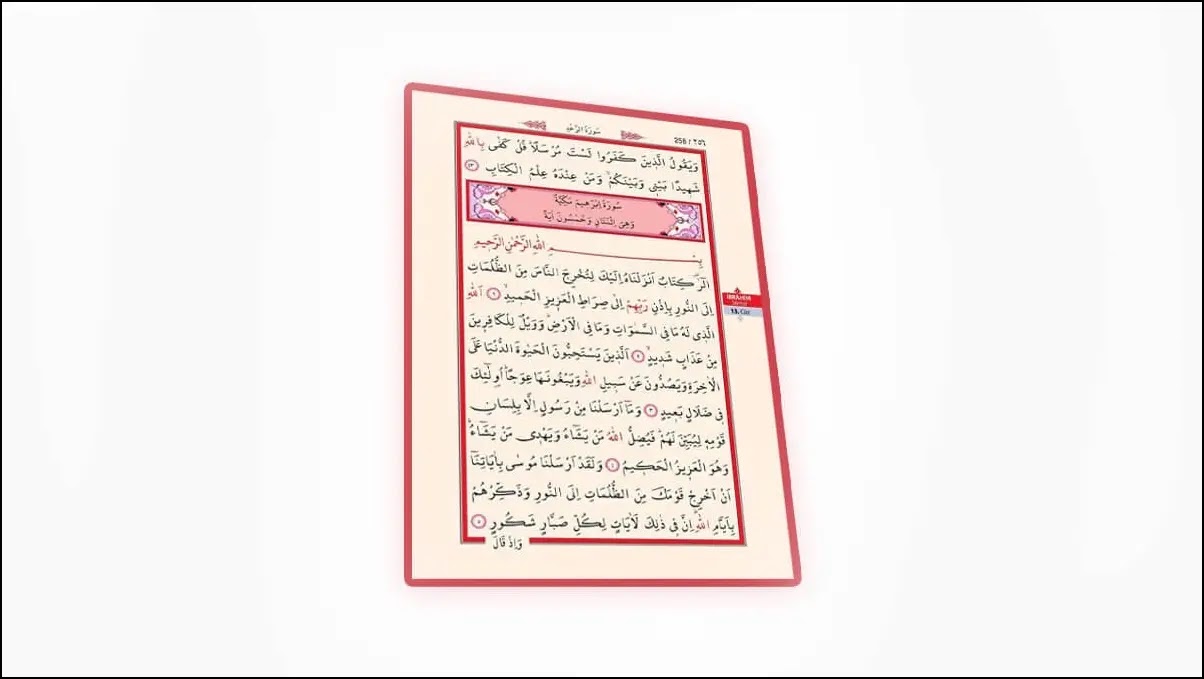 سُورَةُ الرَّعْدِ
256 / ٢٥٦
وَيَقُولُ الَّذ۪ينَ كَفَرُوا لَسْتَ مُرْسَلًاۜ قُلْ كَفٰى بِاللّٰهِ
شَه۪يدًا بَيْن۪ي وَبَيْنَكُمْۙ وَمَنْ عِنْدَهُ عِلْمُ الْكِتَابِ ﴿٤٣﴾
سُورَةُ اِبْرٰه۪يمَ مَكِّيَّةٌ
وَهِيَ اِثْنَتَانِ وَخَمْسُونَ اٰيَةً
بِسْمِ اللّٰهِ الرَّحْمٰنِ الرَّح۪يمِ
الٓرٰ۠ كِتَابٌ اَنْزَلْنَاهُ اِلَيْكَ لِتُخْرِجَ النَّاسَ مِنَ الظُّلُمَاتِ
اِلَى النُّورِ بِاِذْنِ رَبِّهِمْ اِلٰى صِرَاطِ الْعَز۪يزِ الْحَم۪يدِۙ ﴿١﴾ اَللّٰهِ
الَّذ۪ي لَهُ مَا فِي السَّمٰوَاتِ وَمَا فِي الْاَرْضِۜ وَوَيْلٌ لِلْكَافِر۪ينَ
مِنْ عَذَابٍ شَد۪يدٍۙ ﴿٢﴾ اَلَّذ۪ينَ يَسْتَحِبُّونَ الْحَيٰوةَ الدُّنْيَا عَلَى
الْاٰخِرَةِ وَيَصُدُّونَ عَنْ سَب۪يلِ اللّٰهِ وَيَبْغُونَهَا عِوَجًاۜ اُو۬لٰٓئِكَ
ف۪ي ضَلَالٍ بَع۪يدٍ ﴿٣﴾ وَمَٓا اَرْسَلْنَا مِنْ رَسُولٍ اِلَّا بِلِسَانِ
قَوْمِه۪ لِيُبَيِّنَ لَهُمْۜ فَيُضِلُّ اللّٰهُ مَنْ يَشَٓاءُ وَيَهْد۪ي مَنْ يَشَٓاءُۜ
وَهُوَ الْعَز۪يزُ الْحَك۪يمُ ﴿٤﴾ وَلَقَدْ اَرْسَلْنَا مُوسٰى بِاٰيَاتِنَٓا
اَنْ اَخْرِجْ قَوْمَكَ مِنَ الظُّلُمَاتِ اِلَى النُّورِ وَذَكِّرْهُمْ
بِاَيَّامِ اللّٰهِۜ اِنَّ ف۪ي ذٰلِكَ لَاٰيَاتٍ لِكُلِّ صَبَّارٍ شَكُورٍ ﴿٥﴾
وَاِذْ قَالَ
İBRÂHÎM
Sûresi
13. Cüz